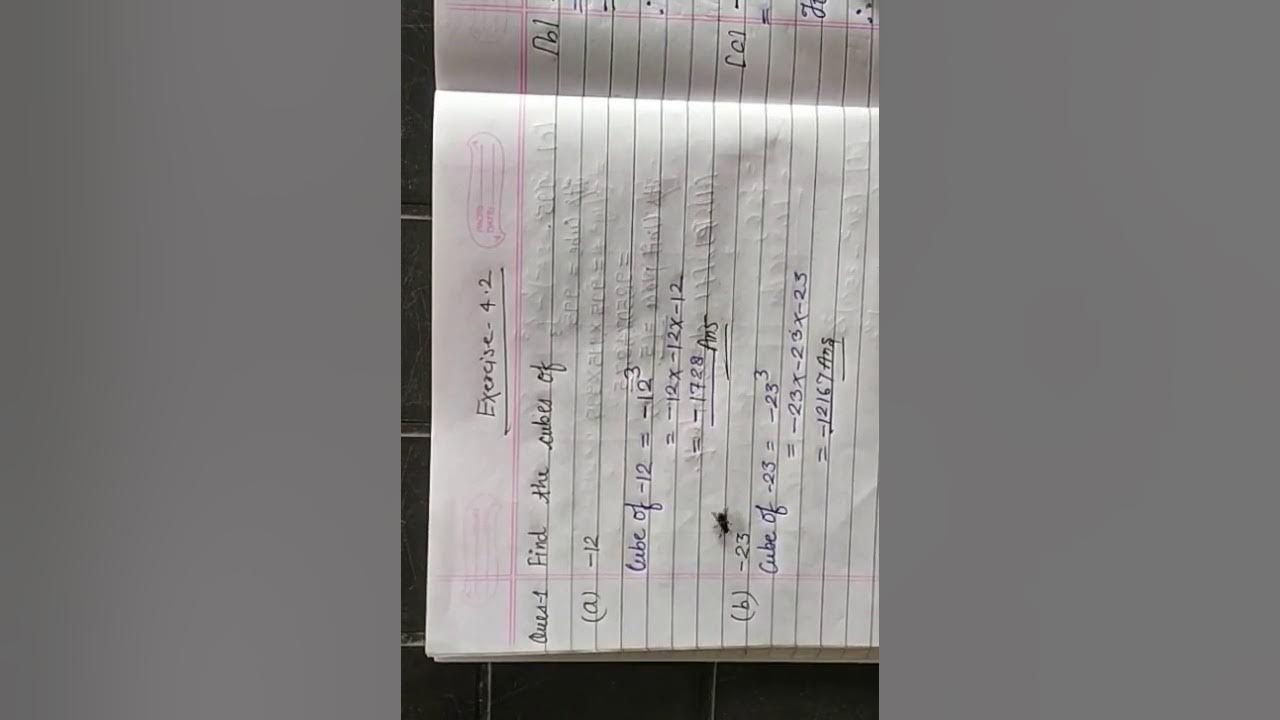 Exercise - 4.2
Ques-1 Find the cubes of
(a) -12
Cube of -12 = -12³
= -12x-12x-12
= -1728 Ans
(b) -23
Cube of -23 = -23³
= -23x-23x-23
= -12167 Ans
[b]
[c] -
=